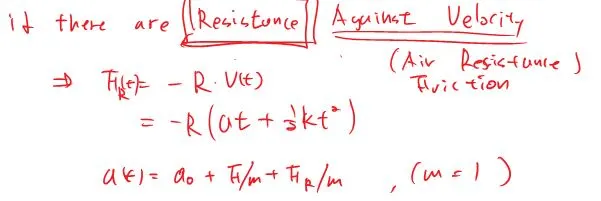 if there are Resistance Against Velocity
(Air Resistance)
⇒ F_R(t) = - R · V(t) Friction
= -R(at + ½kt²)
a(t) = a₀ + F/m + F_R/m , (m = 1)